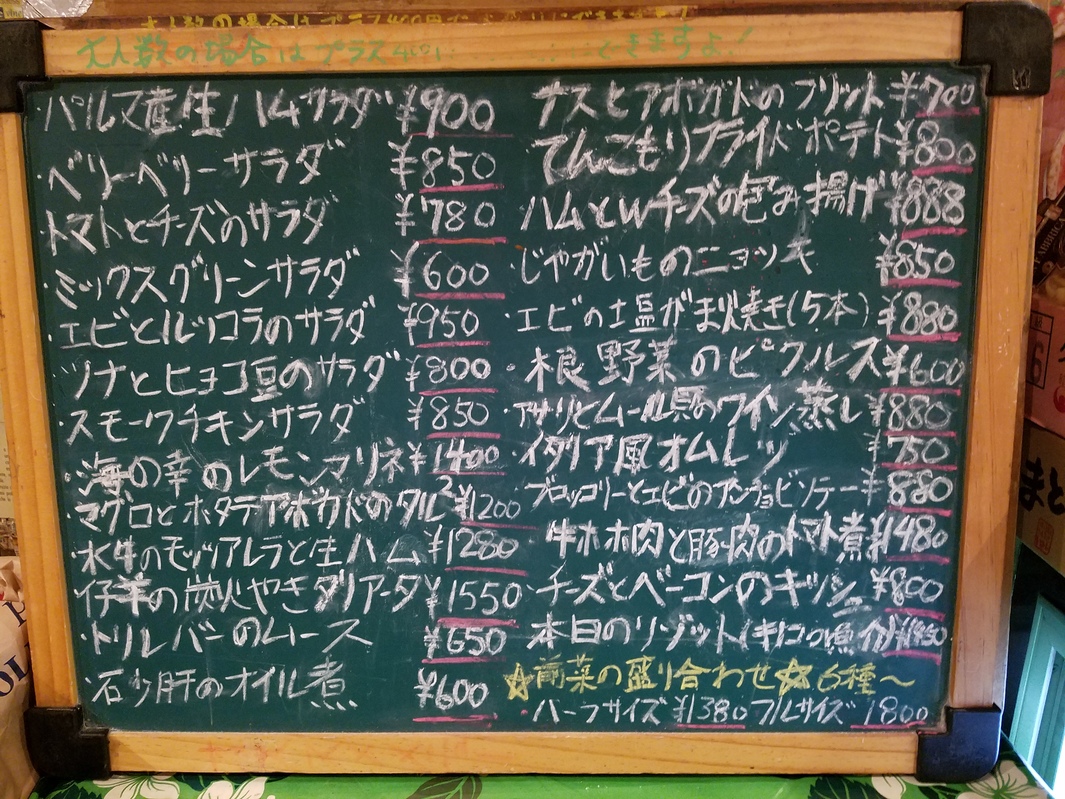 大人数の場合はプラス400
大人数の場合はプラス40 できますよ!
・パルマ産生ハムサラダ ¥900
・ベリーベリーサラダ ¥850
・トマトとチーズのサラダ ¥780
・ミックスグリーンサラダ ¥600
・エビとルッコラのサラダ ¥950
・ツナとヒヨコ豆のサラダ ¥800
・スモークチキンサラダ ¥850
・海の幸のレモンマリネ ¥1400
・マグロとホタテアボカドのタルタル ¥1200
・水牛のモッツアレラと生ハム ¥1280
・仔羊の炭火やきダリアータ ¥1550
・トリレバーのムース ¥650
・砂肝のオイル煮 ¥600
ナスとアボガドのフリット ¥700
てんこもりフライドポテト ¥800
・ハムとWチーズの包み揚げ ¥888
・じゃがいものニョッキ ¥850
・エビの土塩がま火焼き(5本) ¥880
・根野菜のピクルス ¥600
・アサリとムール貝のワイン蒸し ¥880
・イタリア風オムレツ ¥750
ブロッコリーとエビのアンチョビソテー ¥880
牛ホホ肉と豚肉のトマト煮 ¥1480
・チーズとベーコンのキッシュ ¥800
・本日のリゾット
☆前菜の盛り合わせ☆6種～
・ハーフサイズ ¥1380 フルサイズ 1800
まと